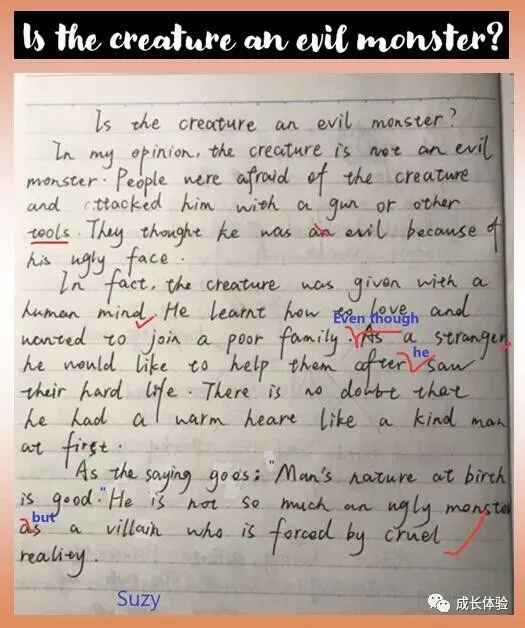 Is the creature an evil monster?
Is the creature an evil monster?
In my opinion, the creature is not an evil
monster. People were afraid of the creature
and attacked him with a gun or other
tools. They thought he was an evil because of
his ugly face.
In fact, the creature was given with a
human mind. He learnt how to love and
Even though
wanted to join a poor family. As a stranger,
he
he would like to help them after saw
their hard life. There is no doubt that
he had a warm heare like a kind man
at first.
As the saying goes: "Man's nature at birth
is good." He is not so much an ugly monster
but
as a villain who is forced by cruel
reality.
Suzy
成长体验